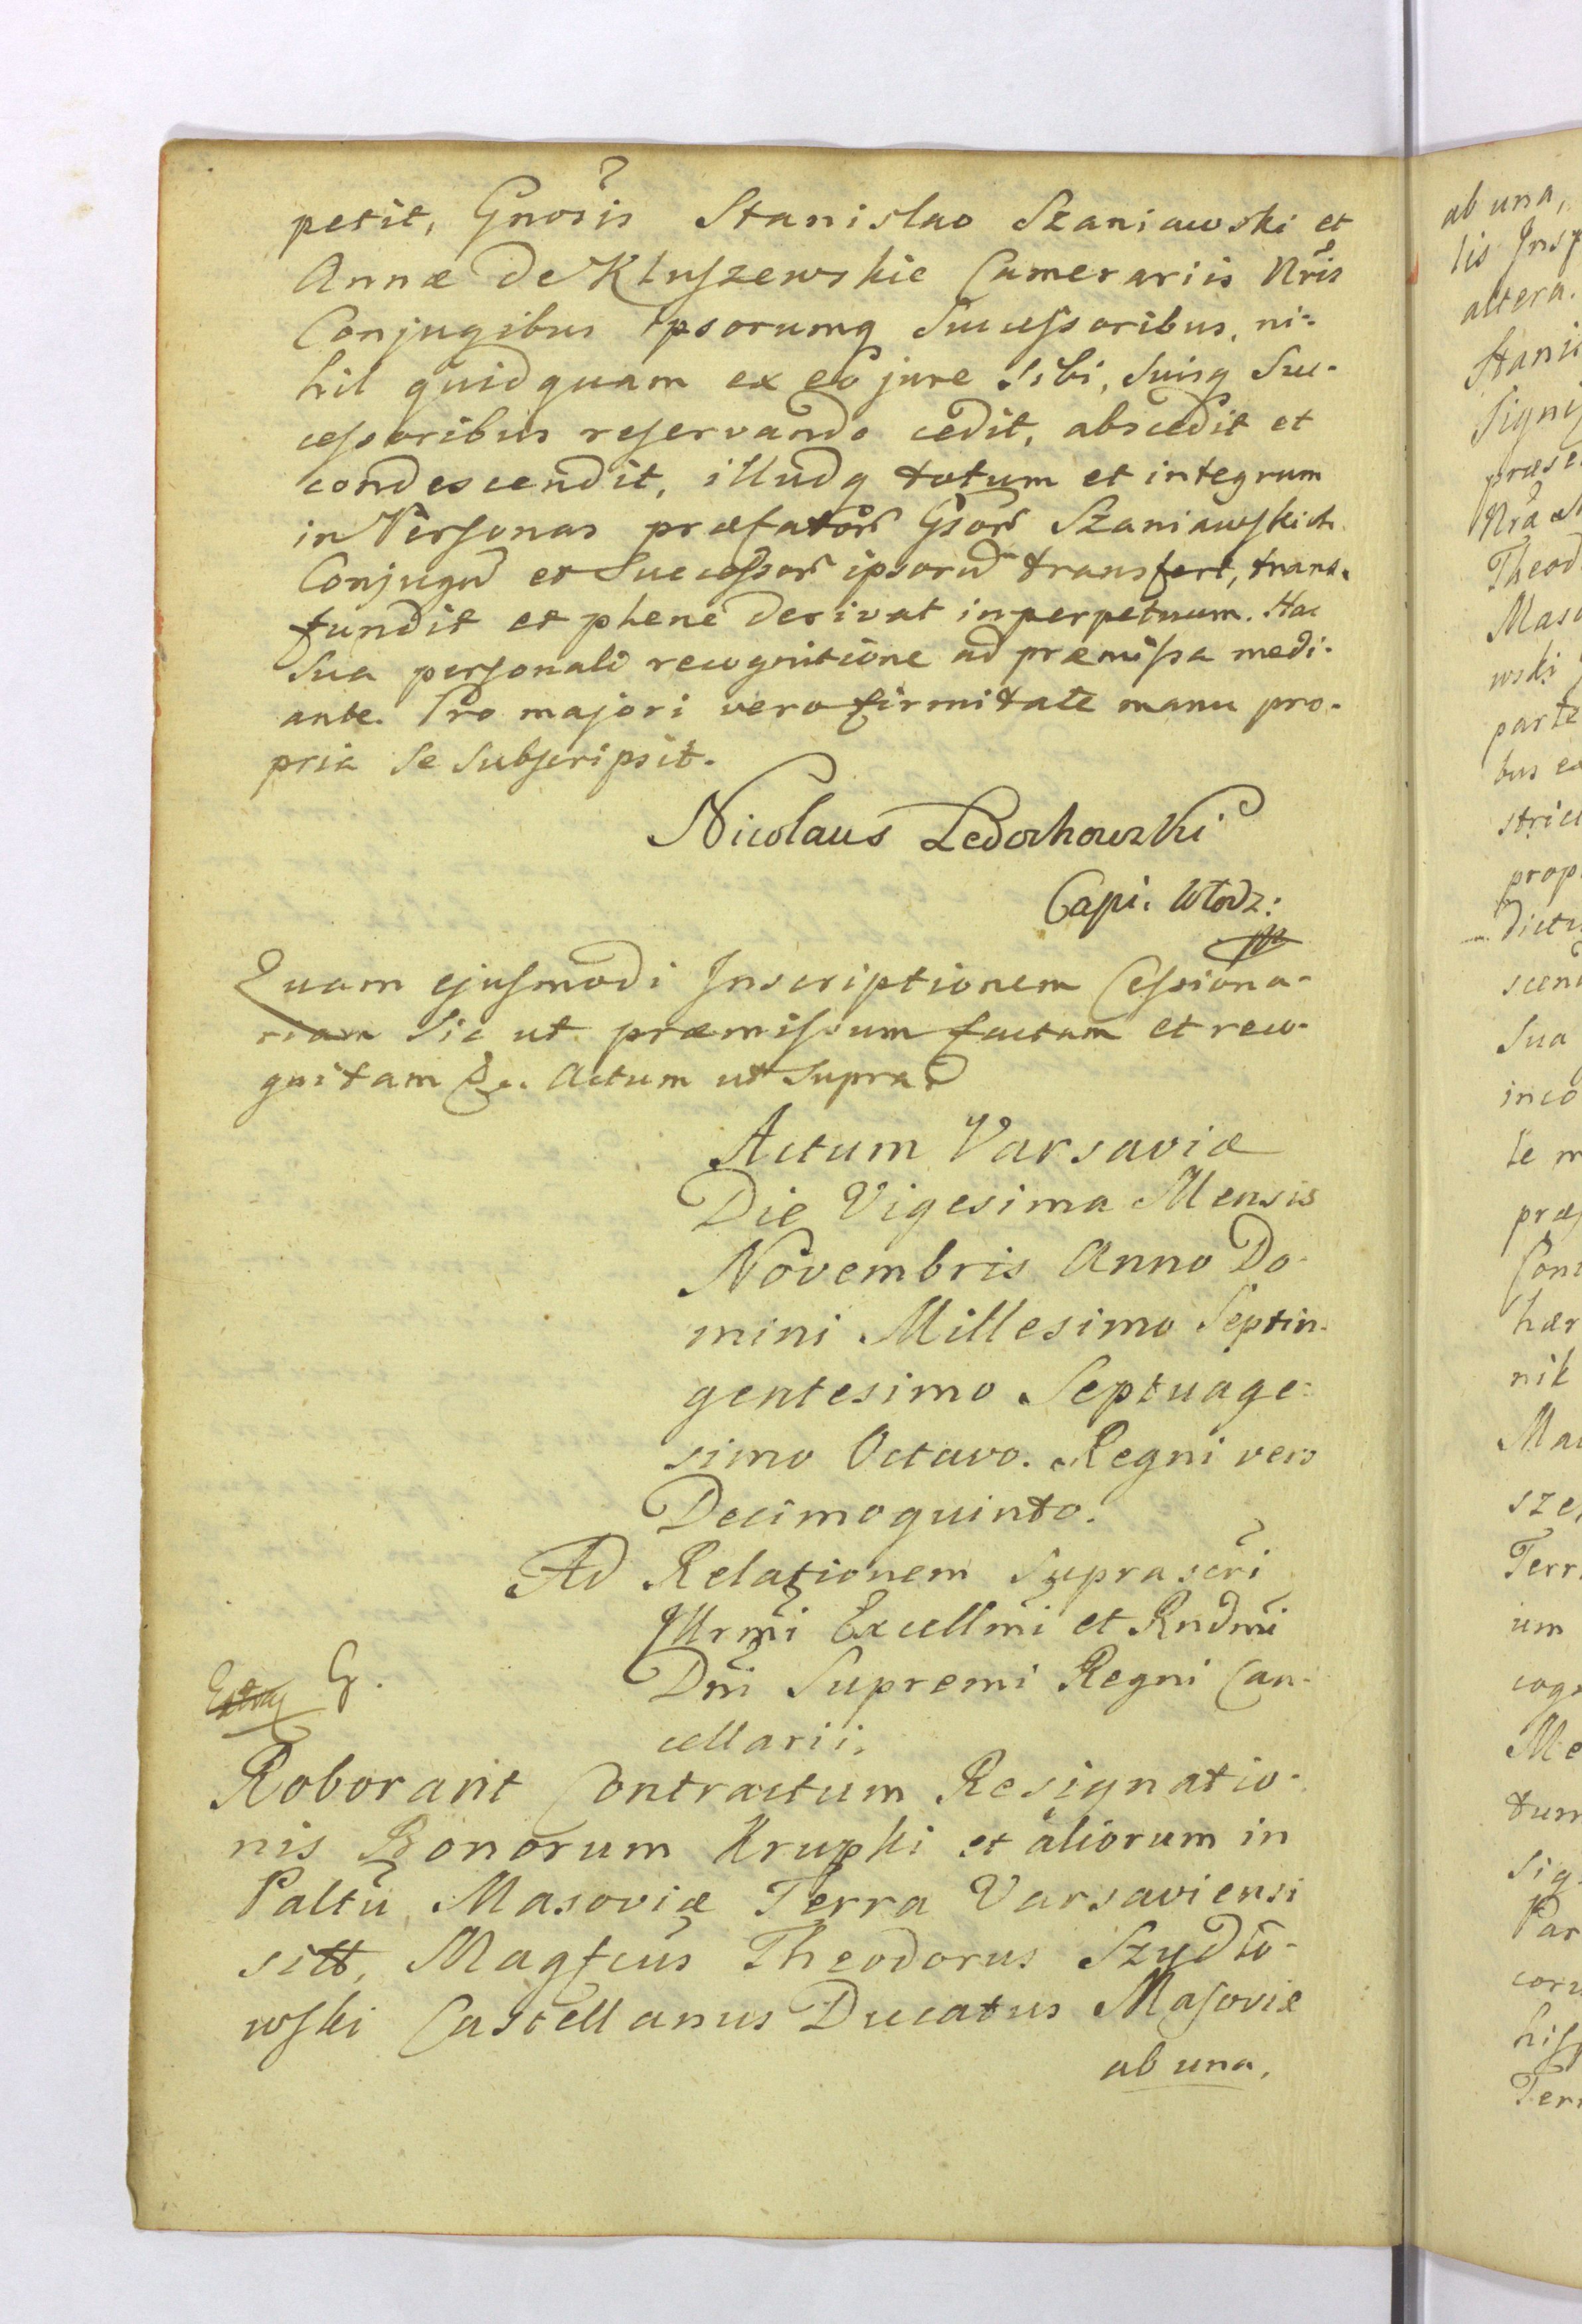 petit, Gnosis Stanislao Szaniawski et
Annæ de Kluszewskie Camerariis Nris
Conjugibus Ipsorumq Successoribus, ni-
hil quidquam ex eo jure Sibi, Suisq Suc-
cessoribus reservando cedit, abscedit et
condescendit, illudq totum et integrum
in Personas præfator Gsor Szaniawskich
Conjugũ et Successor ipsorũ transfert, trans-
fundit et plene derivat inperpetuum. Hac
Sua personali recognitione ad præmissa medi-
ante. Pro majori vero firmitate manu pro-
pria Se Subscripsit.
Nicolaus Ledochowski
Capi. Włodz:
Quam ejusmodi Inscriptionem Cessiona-
riam Sic ut præmissum factam et reco-
gnitam &c. Actum ut Supra
Actum Varsaviæ
Die Vigesima Mensis
Novembris Anno Do-
mini Millesimo Septin-
gentesimo Septuage-
simo Octavo. Regni vero
Decimoquinto.
Ad Relationem Suprascri
Illrmi Excellmi et Rndmi
G. Dni Supremi Regni Can-
cellarii.
Roborant Contractum Resignatio-
nis Bonorum Krupki et aliorum in
Paltu Masoviæ Terra Varsaviensi
sitt, Magfcus Theodorus Szydło-
wski Castellanus Ducatus Masoviæ
ab una,
ab una,
altera.
Theod
Maso
wski
parte
bus ea
prop
Sua
inco
te m
nik
Terr
um
Me
tum
Par